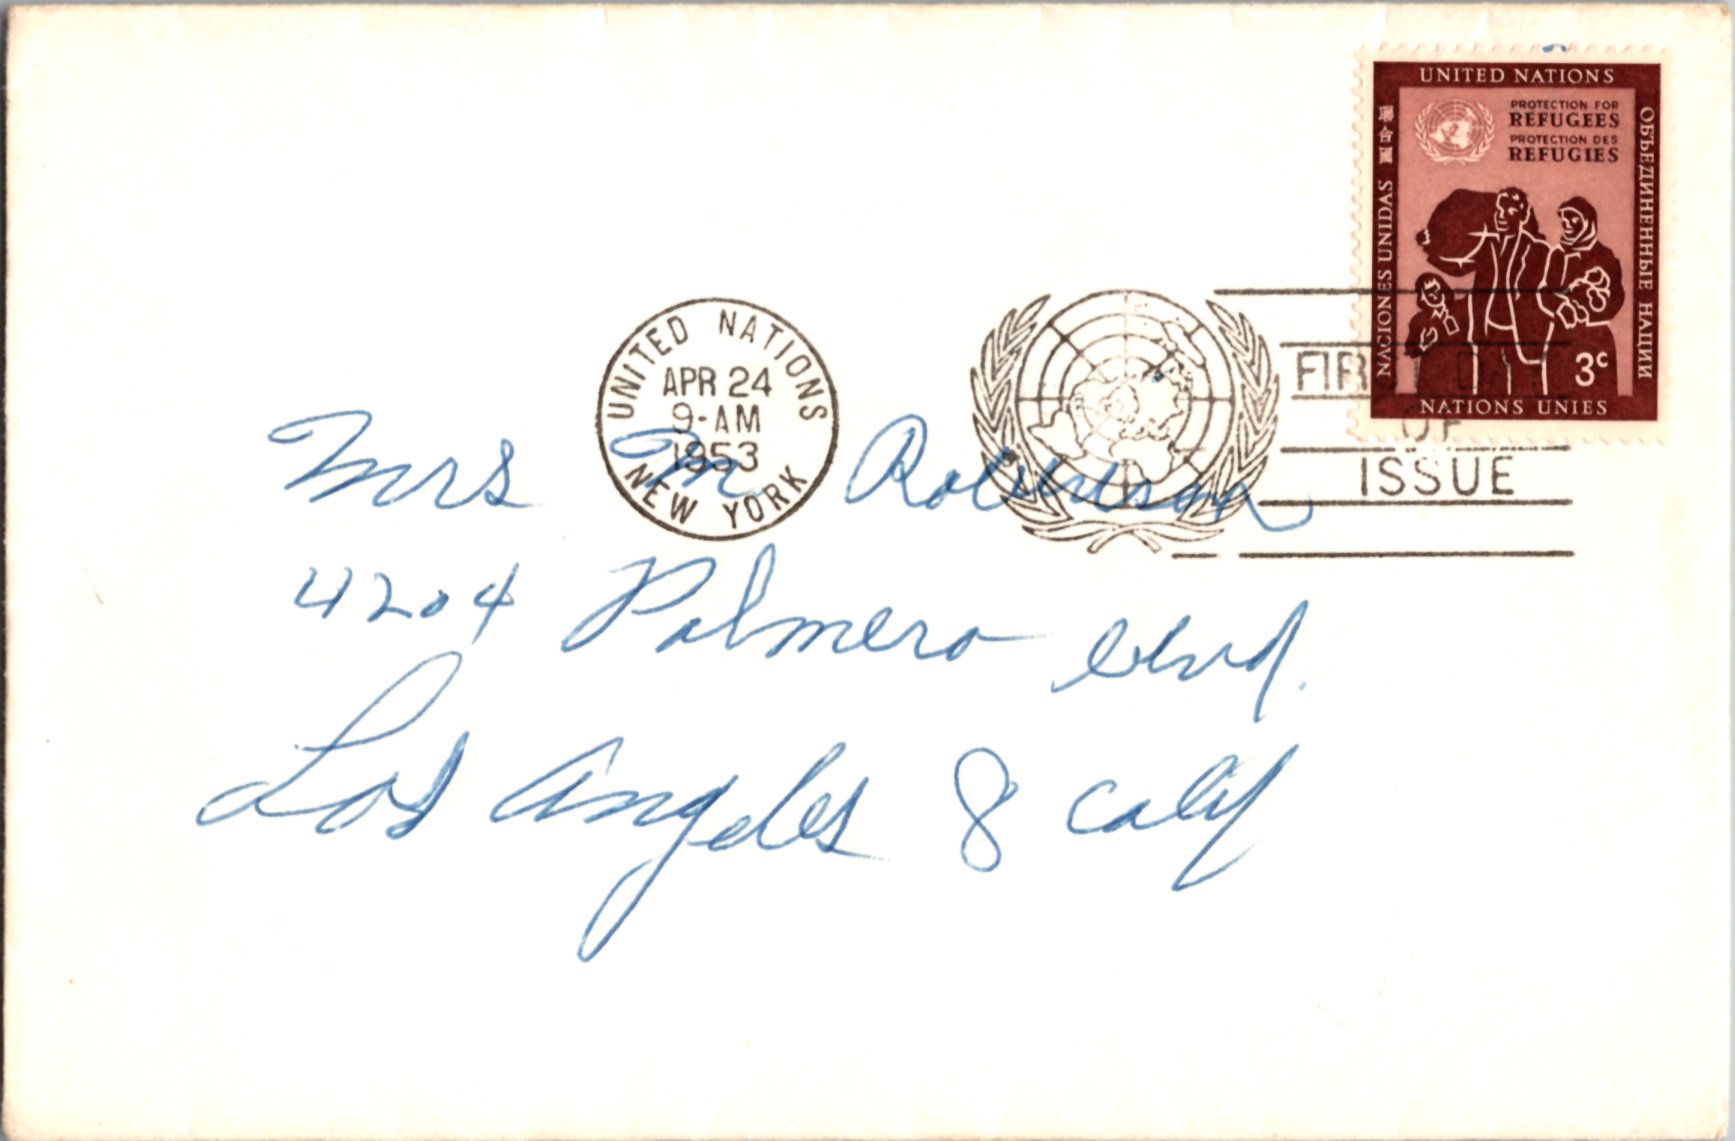 UNITED NATIONS
聯合國
NACIONES UNIDAS
PROTECTION FOR
REFUGEES
PROTECTION DES
REFUGIES
ОБЪЕДИНЕННЫЕ НАЦИИ
3c
NATIONS UNIES
UNITED NATIONS
APR 24
9-AM
1953
NEW YORK
FIRST DAY
OF
ISSUE
Mrs M Robinson
4204 Palmero blvd.
Los Angeles 8 Calif